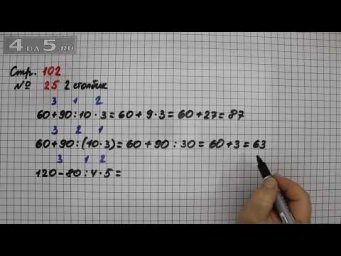 4DA5.RU
Стр. 102
№ 25 2 столбик
3 1 2
60+90:10·3=60+9·3=60+27=87
3 2 1
60+90:(10·3)=60+90:30=60+3=63
3 1 2
120-80:4·5=